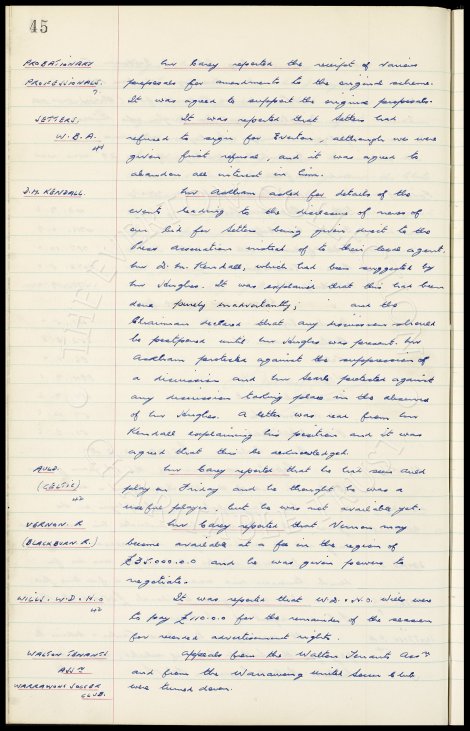 45
PROBATIONARY Mr Carey reported the receipt of various
PROFESSIONALS. proposals for amendments to the original scheme.
? It was agreed to support the original proposals.
SETTERS. It was reported that Setters had
W.B.A. refused to sign for Everton, although we were
given first refusal, and it was agreed to
abandon all interest in him.
D.H. KENDALL. Mr Askham asked for details of the
events leading to the disclosure of news of
our bid for Setters being given direct to the
Press Association instead of to their local agent,
Mr D.H. Kendall, which had been suggested by
Mr Hughes. It was explained that this had been
done purely inadvertantly; and the
Chairman declared that any discussion should
be postponed until Mr Hughes was present. Mr
Askham protested against the suppression of
a discussion and Mr Searls protested against
any discussion taking place in the absence
of Mr Hughes. A letter was read from Mr
Kendall explaining his position and it was
agreed that this be acknowledged.
AULD. Mr Carey reported that he had seen Auld
(CELTIC) play on Friday and he thought he was a
42 useful player, but he was not available yet.
VERNON. R Mr Carey reported that Vernon may
(BLACKBURN R.) become available at a fee in the region of
£35.000.0.0 and he was given powers to
negotiate.
WILLS. W.D. & H.O It was reported that W.D. & H.O. Wills were
42 to pay £110.0.0 for the remainder of the season
for received advertisement rights.
WALTON TENANTS Appeals from the Walton Tenants Assn
ASSN and from the Warrawong United Soccer Club
WARRAWONG SOCCER were turned down.
CLUB.